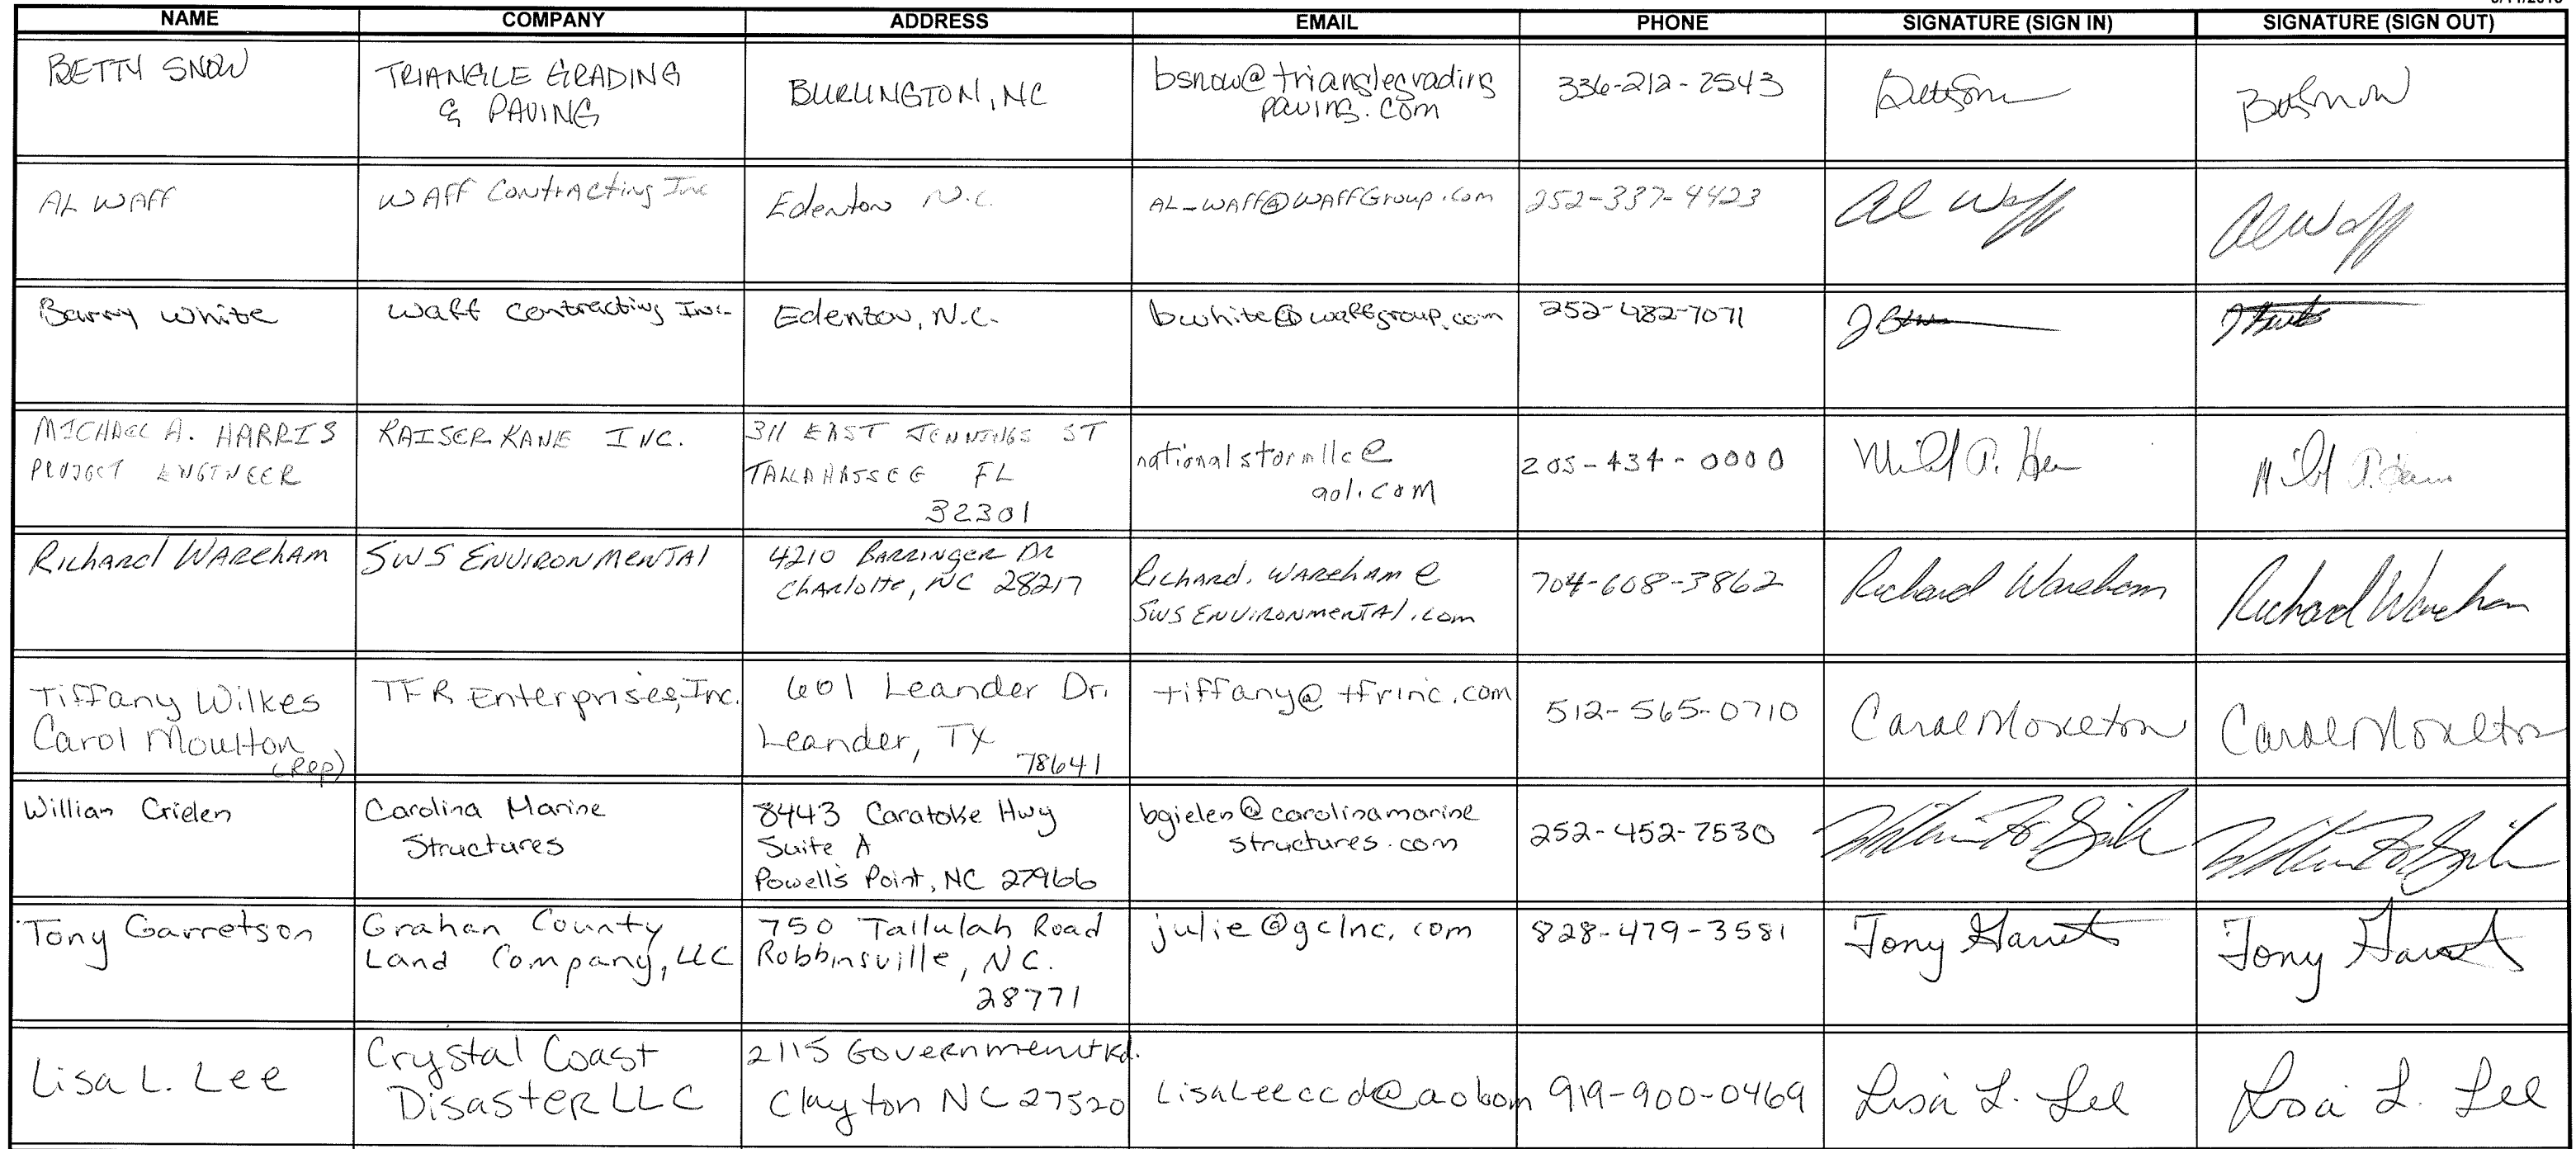 NAME COMPANY ADDRESS EMAIL PHONE SIGNATURE (SIGN IN) SIGNATURE (SIGN OUT)
BETTY SNOW
TRIANGLE GRADING
& PAVING
BURLINGTON, NC
bsnow@trianglegrading
paving.com
336-212-2543
AL WAFF
WAFF Contracting Inc
Edenton N.C.
AL-WAFF@WAFFGroup.com
252-337-4423
Al Waff
Al Waff
Barry White
Waff Contracting Inc.
Edenton, N.C.
bwhite@waffgroup.com
252-482-7071
MICHAEL A. HARRIS
PROJECT ENGINEER
KAISER KANE INC.
311 EAST JENNINGS ST
TALLAHASSEE FL
32301
nationalstormllc@
aol.com
205-434-0000
Richard Wareham
SWS ENVIRONMENTAL
4210 BARRINGER DR
Charlotte, NC 28217
Richard.Wareham@
SWSENVIRONMENTAL.com
704-608-3862
Richard Wareham
Richard Wareham
Tiffany Wilkes
Carol Moulton
(Rep)
TFR Enterprises, Inc.
601 Leander Dr.
Leander, TX
78641
tiffany@tfrinc.com
512-565-0710
Carol Moulton
Carol Moulton
William Gielen
Carolina Marine
Structures
8443 Caratoke Hwy
Suite A
Powell's Point, NC 27966
bgielen@carolinamarine
structures.com
252-452-7530
Tony Garretson
Graham County
Land Company, LLC
750 Tallulah Road
Robbinsville, NC.
28771
julie@gclnc.com
828-479-3581
Tony Garret
Tony Garret
Lisa L. Lee
Crystal Coast
Disaster LLC
2115 Government Rd.
Clayton NC 27520
828-479-3581
LisaLeeccd@aol.com
919-900-0469
Lisa L. Lee
Lisa L. Lee